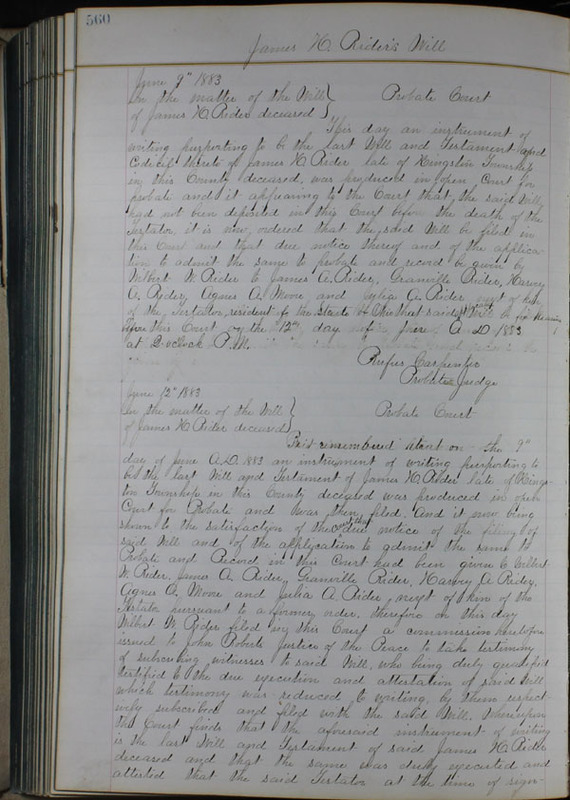 560
James H. Rider's Will
June 9" 1883
In the matter of the Will } Probate Court
of James H. Rider deceased }
This day an instrument of
writing purporting to be the last Will and Testament and
Codicil thereto of James H. Rider late of Kingston Township
in this County deceased, was produced in open Court for
probate and it appearing to the Court that the said Will
had not been deposited in this Court before the death of the
Testator, it is now ordered that the said Will be filed in
this Court and that due notice thereof and of the applica-
tion to admit the same to probate and record be given by
Wilbert W. Rider to James A. Rider, Granville Rider, Harvey
A. Rider, Agnes A. Moore and Julia A. Rider next of kin
of the Testator, resident of the State of Ohio that said Will be for hearing
before this Court on the 12th day of June A. D. 1883
at 2 oclock P. M.
Rufus Carpenter
Probate Judge
June 12" 1883
In the matter of the Will } Probate Court
of James H. Rider deceased }
Be it remembered that on the 9"
day of June A.D. 1883 an instrument of writing purporting to
be the last Will and Testament of James H. Rider late of Kings-
ton Township in this County deceased was produced in open
Court for Probate and was then filed. And it now being
shown to the satisfaction of the Court that due notice of the filling of
said Will and of the application to admit the same to
Probate and Record in this Court had been given to Wilbert
W. Rider, James A. Rider, Granville Rider, Harvey A. Rider,
Agnes A. Moore and Julia A. Rider next of kin of the
Testator pursuant to a former order. therefore on this day
Wilbert W. Rider filed in this Court a commission heretofore
issued to John Roberts Justice of the Peace to take testimony
of subscribing witnesses to said Will, who being duly qualified
testified to the due execution and attestation of said Will
which testimony was reduced to writing, by them respect-
ively subscribed and filed with the said Will. Whereupon
the Court finds that the aforesaid instrument of writing
is the last Will and Testament of said James H. Rider
deceased and that the same was duly executed and
attested that the said Testator at the time of sign-